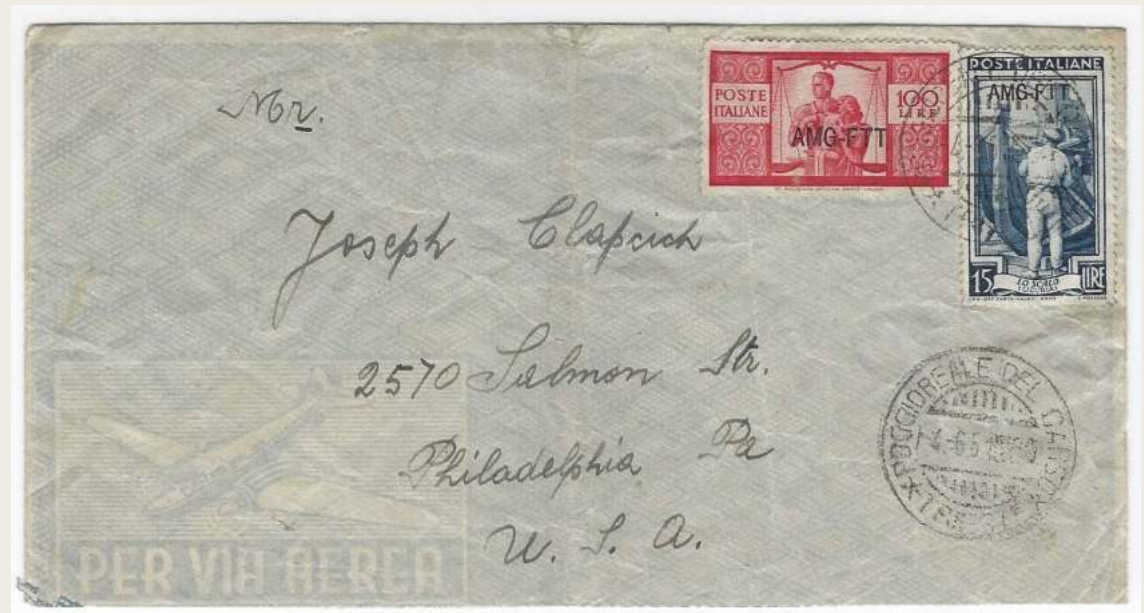 Mr.
POSTE ITALIANE
100 LIRE
AMG-FTT
POSTE ITALIANE
AMG-FTT
15 LIRE
LO SCALO
Joseph Clapcich
2570 Salmon Str.
Philadelphia Pa
U. S. A.
POGGIOREALE DEL CARSO
PER VIA AEREA